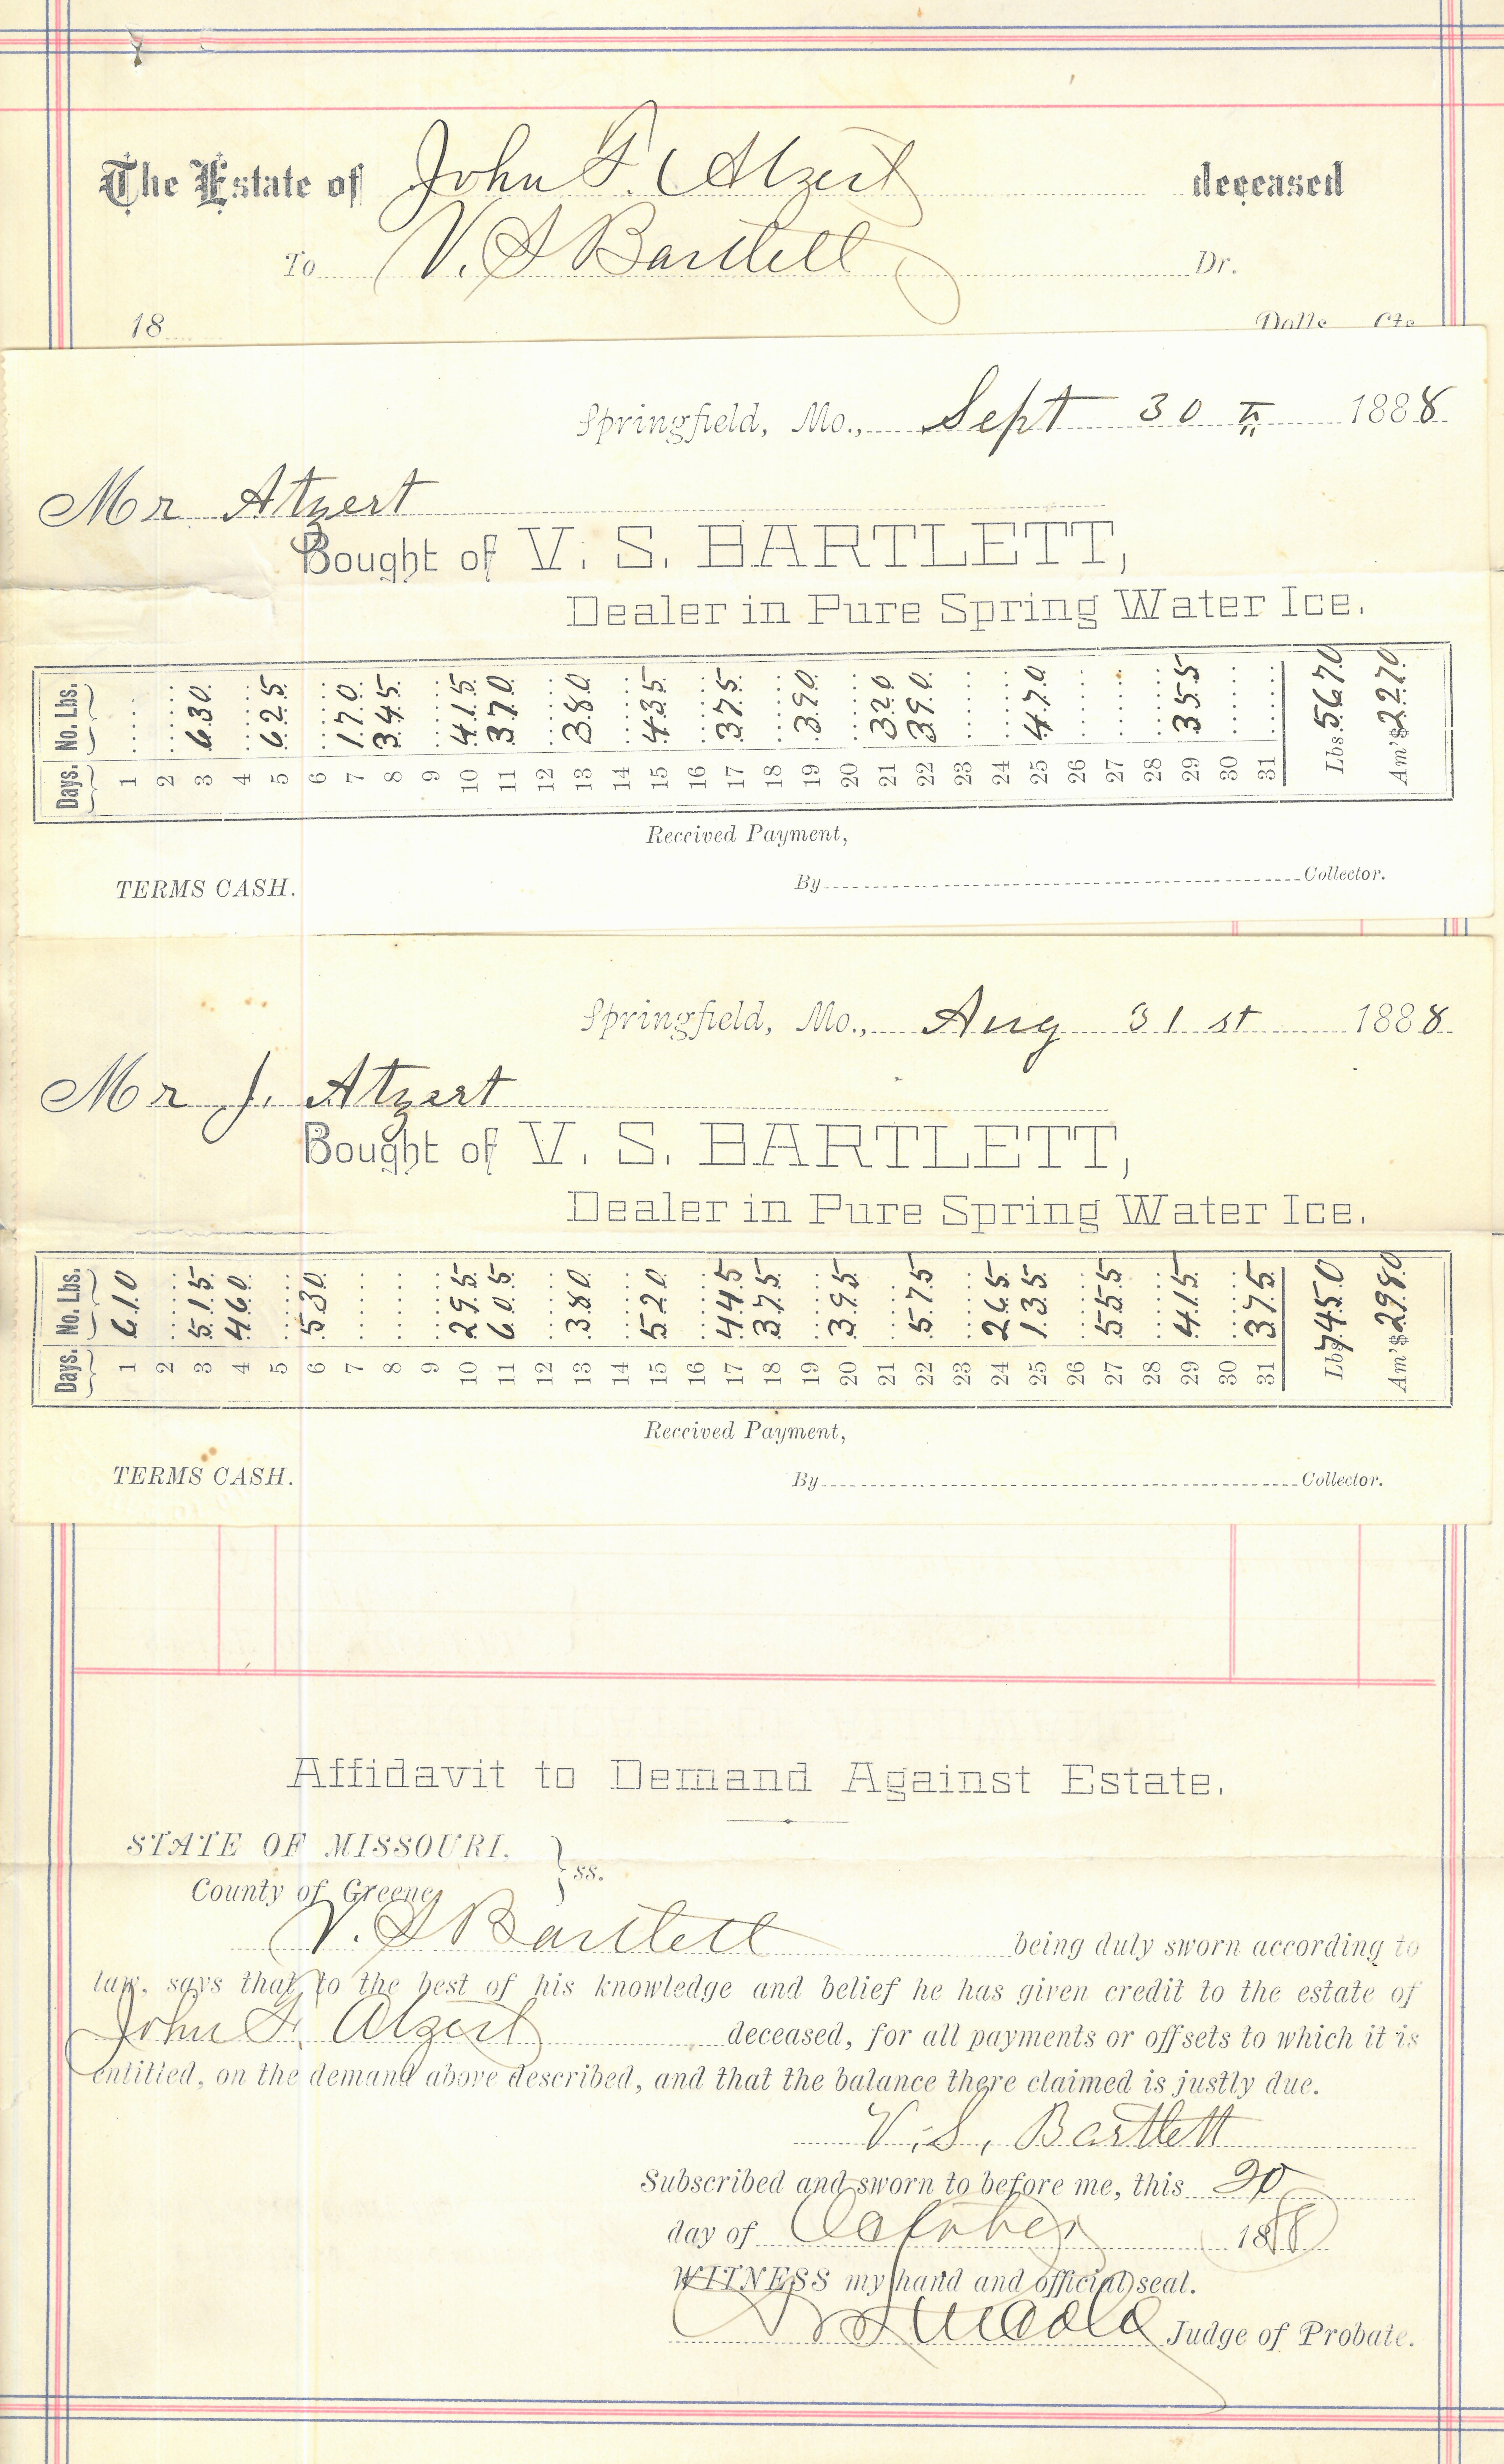 The Estate of John F. Atzert deceased
To V. S Bartlett Dr.
18 Dolls Cts
Springfield, Mo., Sept 30 th 1888
Mr Atzert
Bought of V. S. BARTLETT,
Dealer in Pure Spring Water Ice.
Days. No. Lbs.
1
2
3 630
4
5 625
6
7 170
8 345
9
10 415
11 370
12
13 380
14
15 435
16
17 375
18
19 390
20
21 320
22 390
23
24
25 470
26
27
28
29 355
30
31
Lbs. 5670
Am't $22.70
Received Payment,
TERMS CASH. By Collector.
Springfield, Mo., Aug 31 st 1888
Mr J. Atzert
Bought of V. S. BARTLETT,
Dealer in Pure Spring Water Ice.
Days. No. Lbs.
1 610
2
3 515
4 460
5
6 530
7
8
9
10 295
11 605
12
13 380
14
15 520
16
17 445
18 375
19
20 395
21
22 575
23
24 265
25 135
26
27 555
28
29 415
30
31 375
Lbs 7450
Am't $29.80
Received Payment,
TERMS CASH. By Collector.
Affidavit to Demand Against Estate.
STATE OF MISSOURI. } ss.
County of Greene
V. S Bartlett being duly sworn according to
law, says that to the best of his knowledge and belief he has given credit to the estate of
John F. Atzert deceased, for all payments or offsets to which it is
entitled, on the demand above described, and that the balance there claimed is justly due.
V. S. Bartlett
Subscribed and sworn to before me, this 20
day of October 188
WITNESS my hand and official seal.
Judge of Probate.